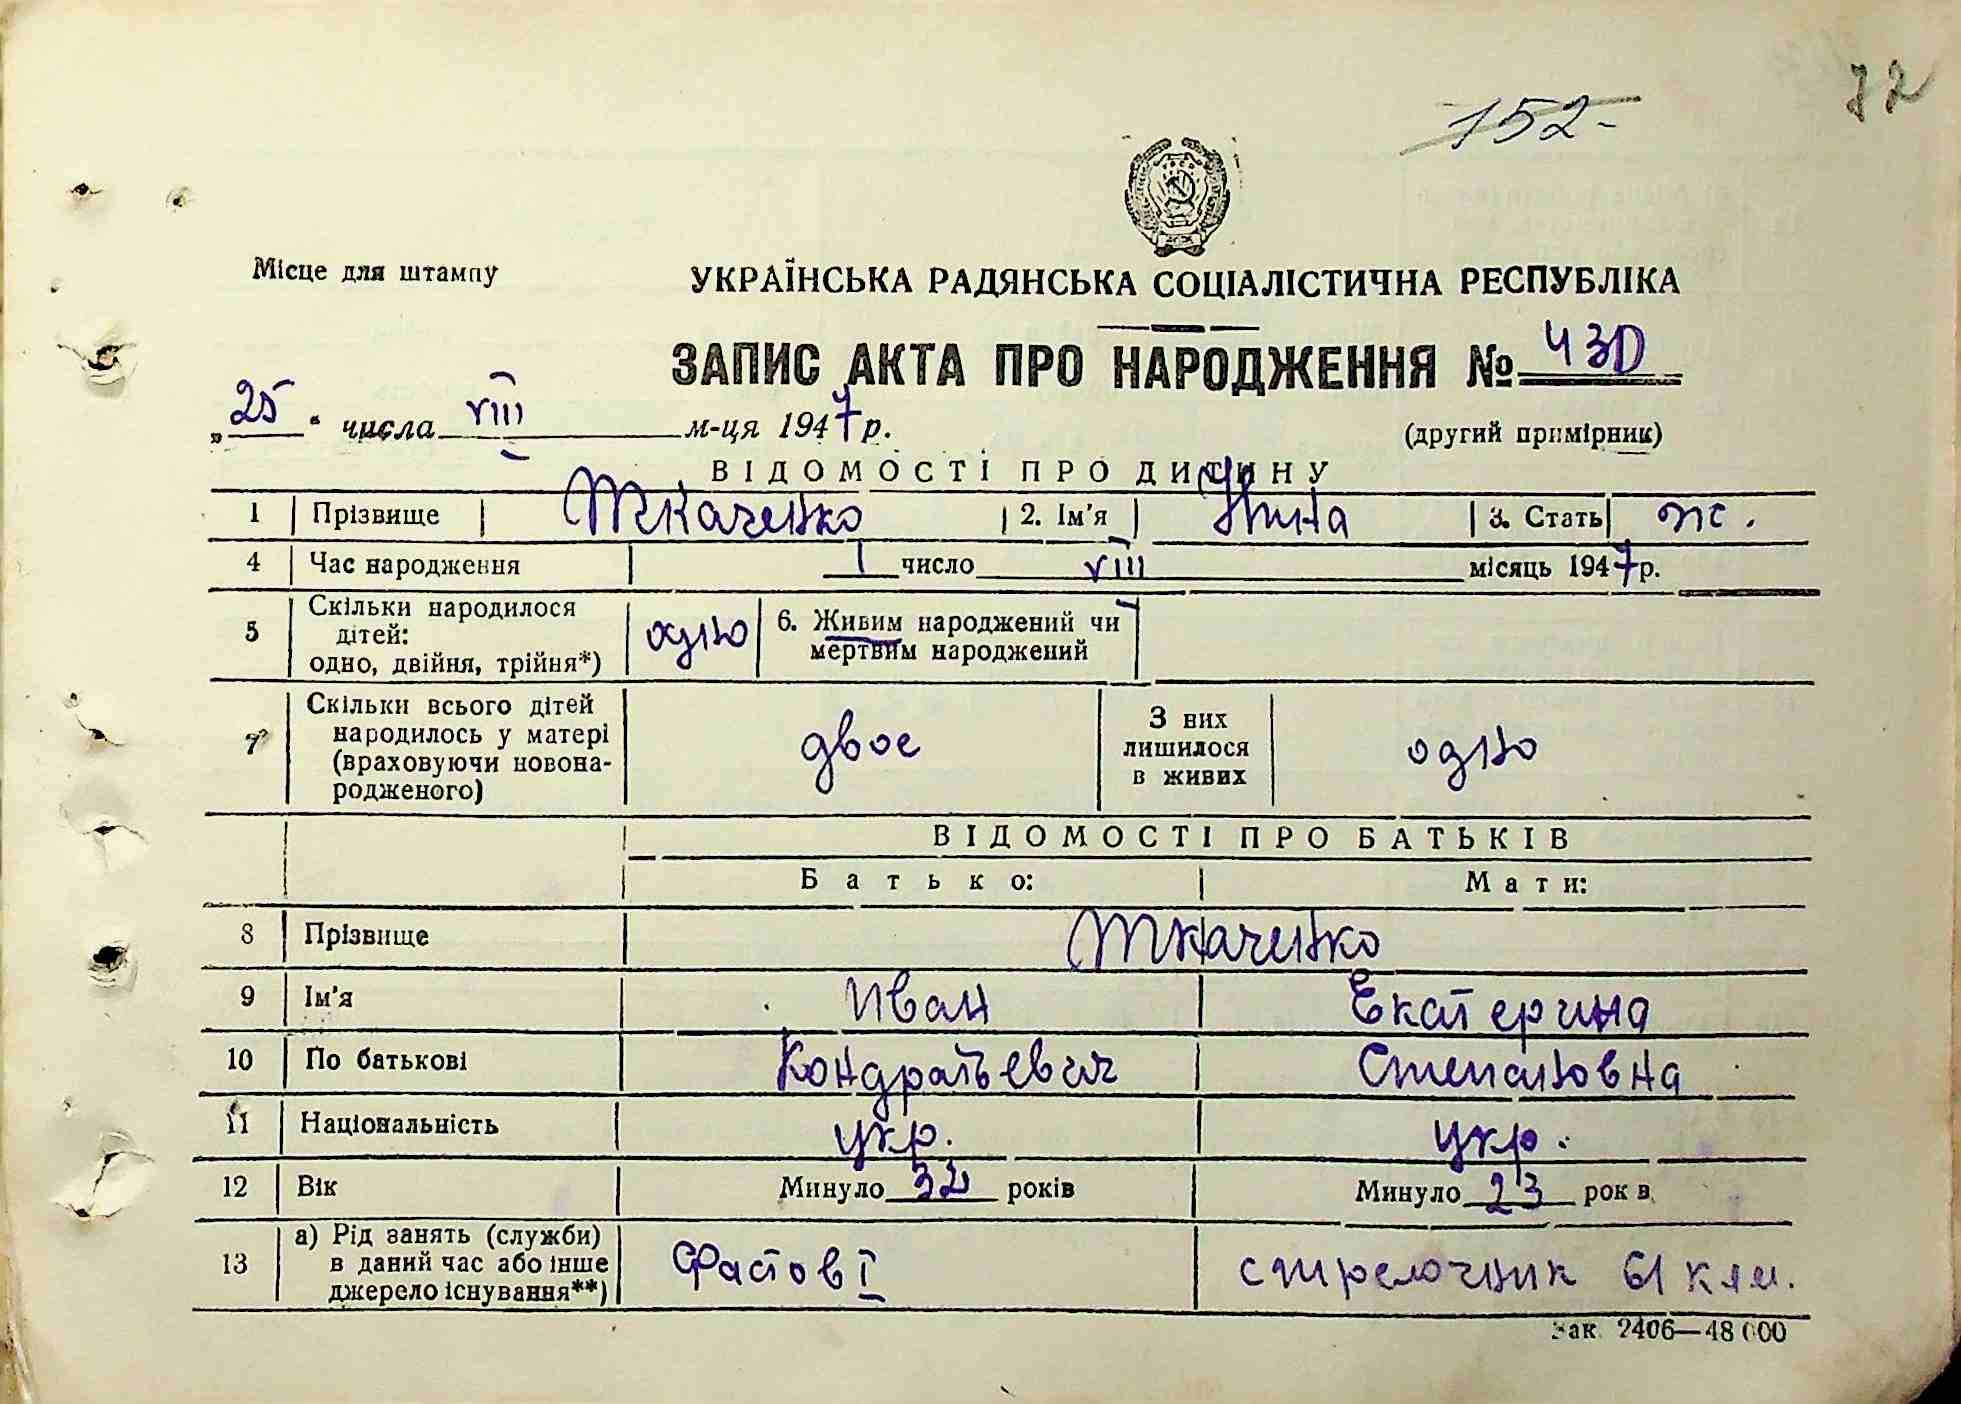 72
152-
Місце для штампу
УКРАЇНСЬКА РАДЯНСЬКА СОЦІАЛІСТИЧНА РЕСПУБЛІКА
ЗАПИС АКТА ПРО НАРОДЖЕННЯ № 430
„25“ числа VIII м-ця 1947 р.
(другий примірник)
ВІДОМОСТІ ПРО ДИТИНУ
1 Прізвище Ткаченко 2. Ім'я Нина 3. Стать ж.
4 Час народження 1 число VIII місяць 1947 р.
5 Скільки народилося дітей: одно, двійня, трійня*) одно 6. Живим народжений чи мертвим народжений
7 Скільки всього дітей народилось у матері (враховуючи новонародженого) двое З них лишилося в живих одно
ВІДОМОСТІ ПРО БАТЬКІВ
Батько: Мати:
8 Прізвище Ткаченко
9 Ім'я Иван Екатерина
10 По батькові Кондратьевич Степановна
11 Національність укр. укр.
12 Вік Минуло 32 років Минуло 23 рок в
13 а) Рід занять (служби) в даний час або інше джерело існування**) Фастов I стрелочник 61 клм.
Зак. 2406—48 000